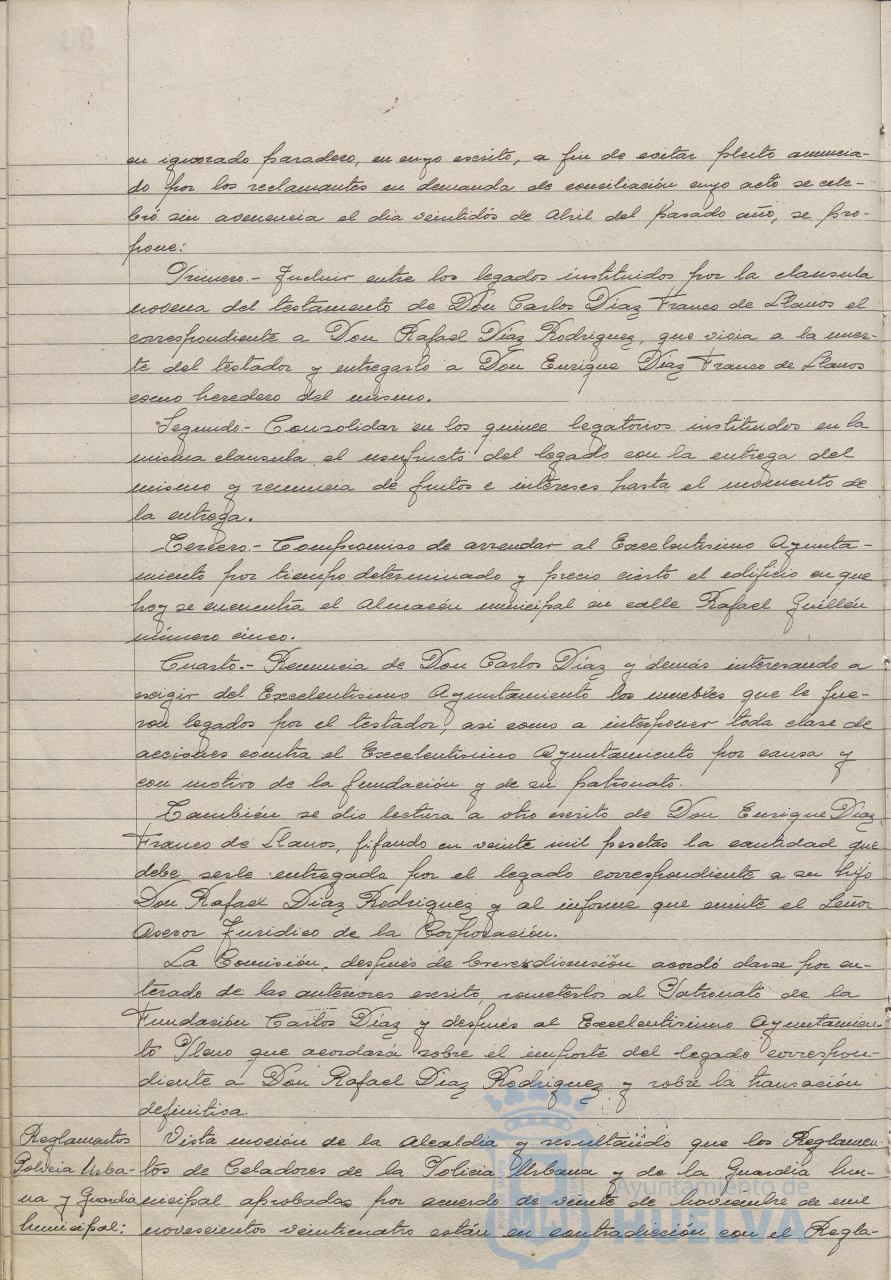 en ignorado paradero, en cuyo escrito, a fin de evitar pleito anuncia-
do por los reclamantes en demanda de conciliación cuyo acto se cele-
bró sin avenencia el dia veintidós de Abril del pasado año, se pro-
pone:
Primero.- Incluir entre los legados instituidos por la clausula
novena del testamento de Don Carlos Díaz Franco de Llanos el
correspondiente a Don Rafael Díaz Rodriguez, que vivia a la muer-
te del testador y entregarlo a Don Enrique Díaz Franco de Llanos
como heredero del mismo.
Segundo.- Consolidar en los quince legatorios instituidos en la
misma clausula el usufructo del legado con la entrega del
mismo y renuncia de frutos e intereses hasta el momento de
la entrega.
Tercero.- Compromiso de arrendar al Excelentisimo Ayunta-
miento por tiempo determinado y precio cierto el edificio en que
hoy se encuentra el Almacén municipal en calle Rafael Guillén
número cinco.
Cuarto.- Renuncia de Don Carlos Díaz y demás interesando a
exigir del Excelentisimo Ayuntamiento los muebles que le fue-
ron legados por el testador, asi como a interponer toda clase de
acciones contra el Excelentisimo Ayuntamiento por causa y
con motivo de la fundación y de su patronato.
También se dio lectura a otro escrito de Don Enrique Díaz
Franco de Llanos, fijando en veinte mil pesetas la cantidad que
debe serle entregada por el legado correspondiente a su hijo
Don Rafael Díaz Rodriguez y al informe que emite el Señor
Asesor Juridico de la Corporación.
La Comisión, después de breve discusión acordó darse por en-
terado de las anteriores escrito, someterlos al Patronato de la
Fundación Carlos Díaz y después al Excelentisimo Ayuntamien-
to Pleno que acordará sobre el importe del legado correspon-
diente a Don Rafael Díaz Rodriguez y sobre la transación
definitiva.
Reglamentos
Policia Urba-
na y Guardia
Municipal:
Vista moción de la Alcaldia y resultando que los Reglamen-
tos de Celadores de la Policia Urbana y de la Guardia Mu-
nicipal aprobadas por acuerdo de veinte de Noviembre de mil
novescientos veinticuatro están en contradicción con el Regla-
Ayuntamiento de
HUELVA